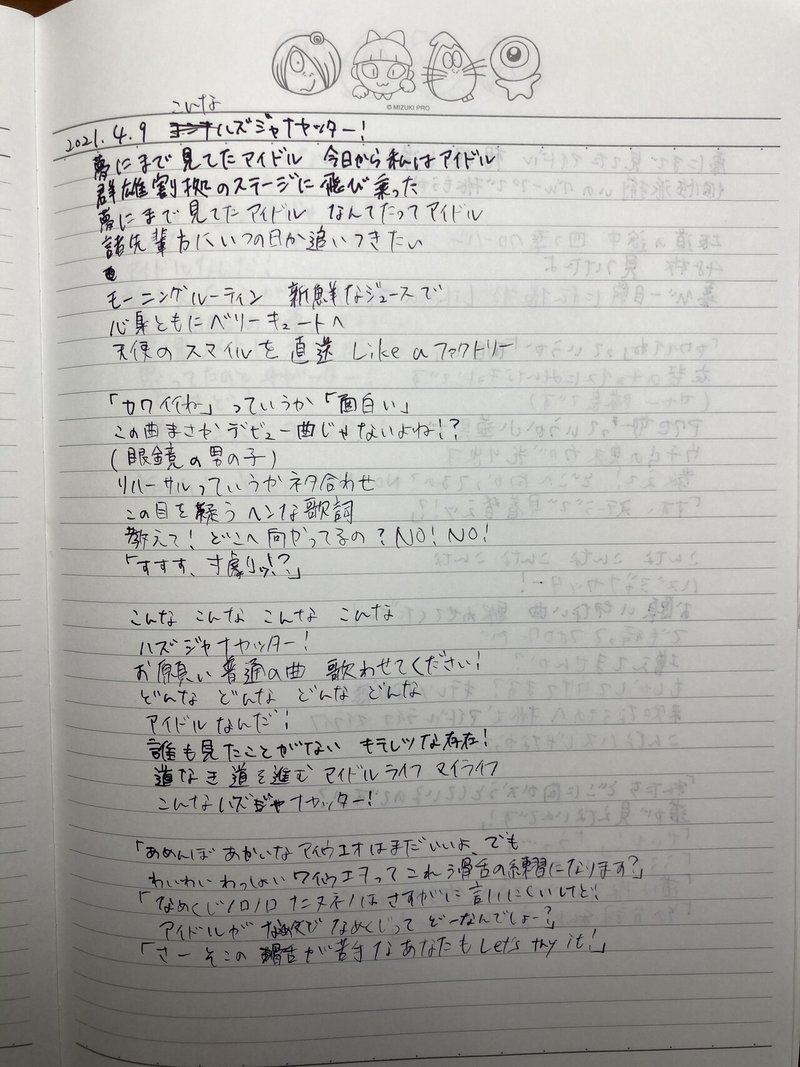 © MIZUKI PRO
こんな
2021.4.9 ハズジャナカッター!
夢にまで見てたアイドル 今日から私はアイドル
群雄割拠のステージに飛び乗った
夢にまで見てたアイドル なんてたってアイドル
諸先輩方にいつの日か追いつきたい
モーニングルーティン 新鮮なジュースで
心身ともにベリーキュートへ
天使のスマイルを直送 Like a ファクトリー
「カワイイね」っていうか「面白い」
この曲まさかデビュー曲じゃないよね!?
(眼鏡の男の子)
リハーサルっていうかネタ合わせ
この目を疑うヘンな歌詞
教えて!どこへ向かってるの?NO!NO!
「すすす、寸劇ッ!?」
こんな こんな こんな こんな
ハズジャナカッター!
お願い普通の曲 歌わせてください!
どんな どんな どんな どんな
アイドルなんだ!
誰も見たことがない モーレツな存在!
道なき道を進む アイドルライフ マイライフ
こんなハズジャナカッター!
「あめんぼあかいなアイウエオはまだいいよ、でも
わいわいわっしょいワイウエヲってこれ滑舌の練習になります?」
「なめくじノロノロナニヌネノはさすがに言いにくいけど!
アイドルがなめくじってどーなんでしょー?」
「さーそこの滑舌が苦手なあなたもLet's try it!」